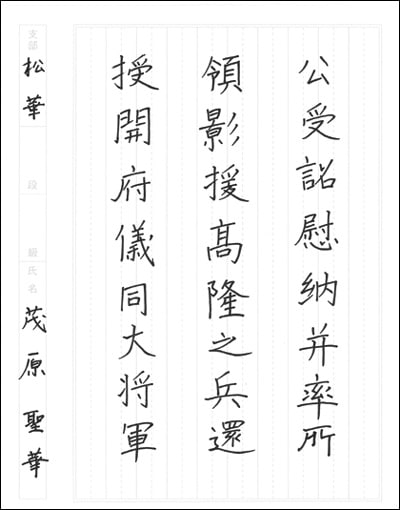 公受詔慰納并率所
領影援高隆之兵還
授開府儀同大将軍
支部 松華
段
級
氏名 茂原聖華